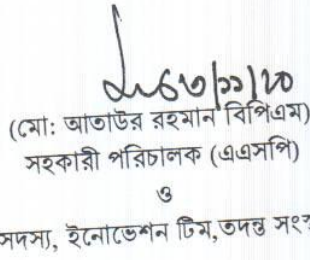 (মো: আতাউর রহমান বিপিএম)
সহকারী পরিচালক (এএসপি)
ও
সদস্য, ইনোভেশন টিম, তদন্ত